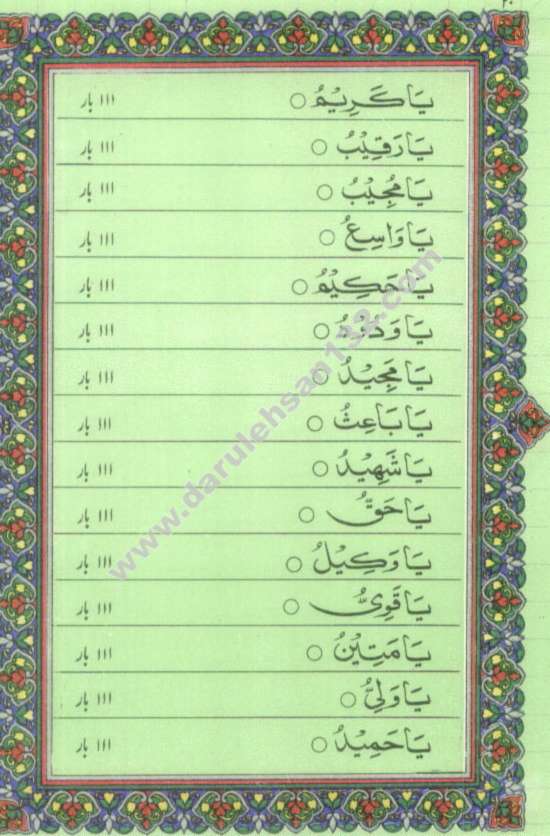 ٢٠
يَا كَرِيْمُ ○ ١١١ بار
يَا رَقِيْبُ ○ ١١١ بار
يَا مُجِيْبُ ○ ١١١ بار
يَا وَاسِعُ ○ ١١١ بار
يَا حَكِيْمُ ○ ١١١ بار
يَا وَدُوْدُ ○ ١١١ بار
يَا مَجِيْدُ ○ ١١١ بار
يَا بَاعِثُ ○ ١١١ بار
يَا شَهِيْدُ ○ ١١١ بار
يَا حَقُّ ○ ١١١ بار
يَا وَكِيْلُ ○ ١١١ بار
يَا قَوِىُّ ○ ١١١ بار
يَا مَتِيْنُ ○ ١١١ بار
يَا وَلِىُّ ○ ١١١ بار
يَا حَمِيْدُ ○ ١١١ بار
www.darulehsan132.com